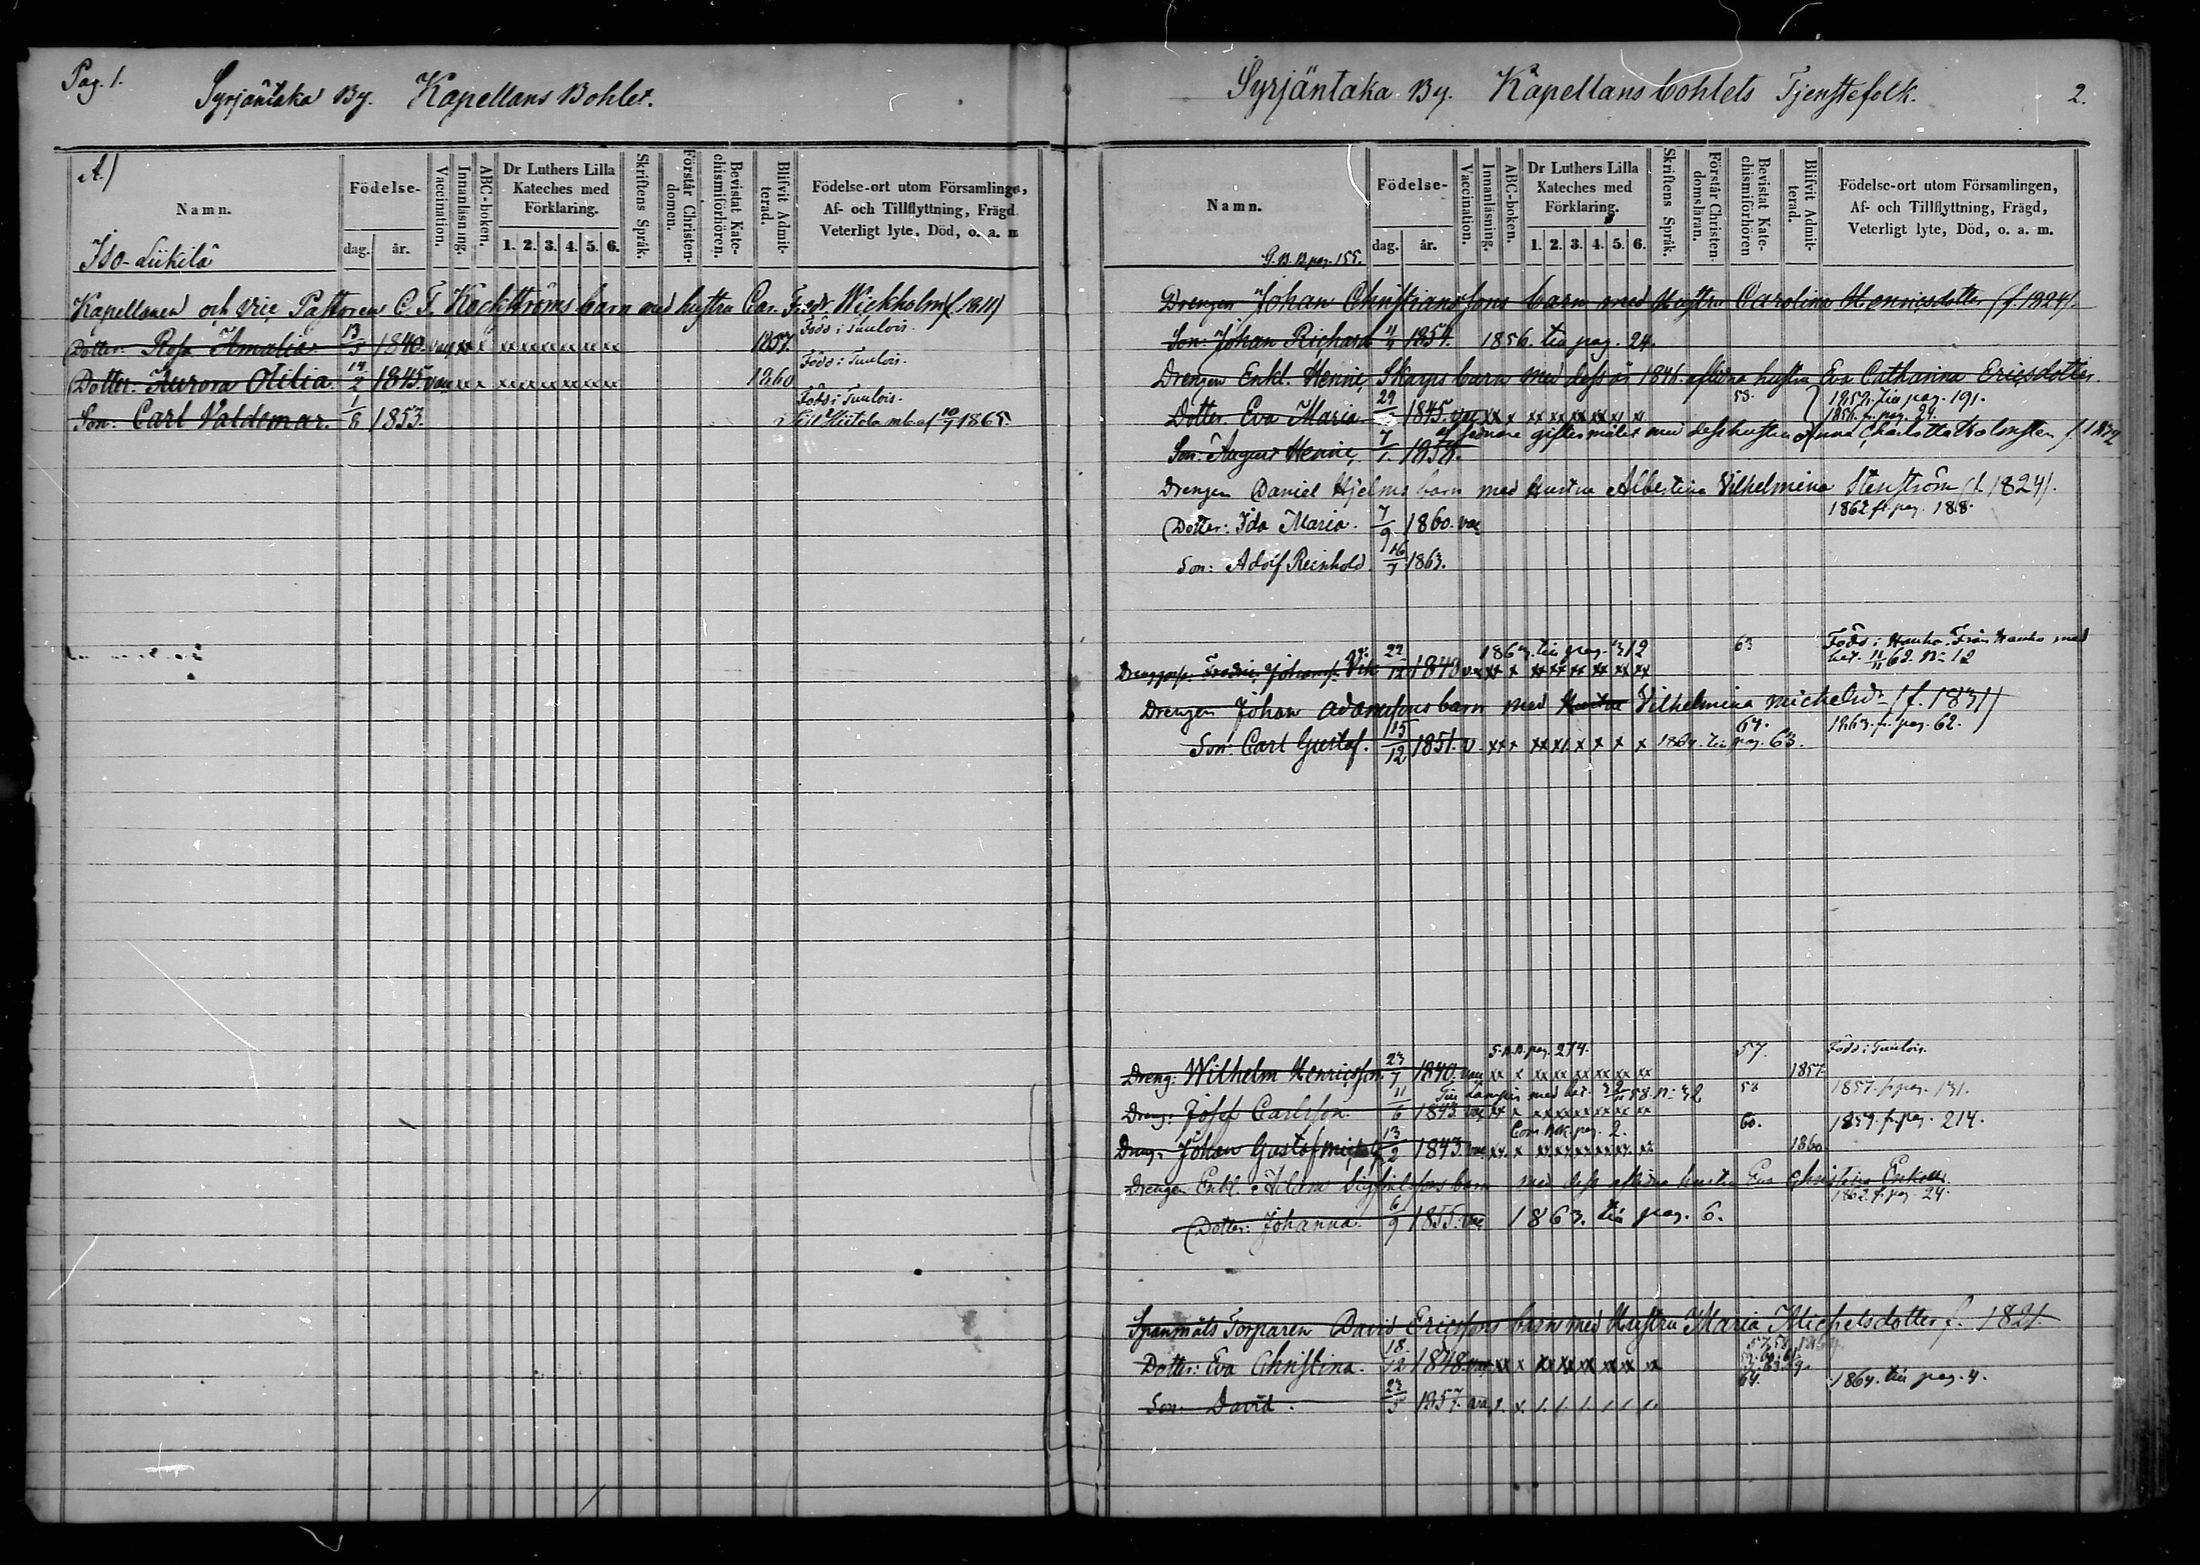 Pag. 1.
Syrjäntaka By. Kapellans Bohlet.
A.)
Namn.
Iso-Liikilä
Födelse-
dag.
år.
Vaccination.
Innanläsning.
ABC-boken.
Dr Luthers Lilla
Kateches med
Förklaring.
1. 2. 3. 4. 5. 6.
Skriftens Språk.
Förstår Christen-
domen.
Bevistat Kate-
chismiförhören.
Blifvit Admit-
terad.
Födelse-ort utom Församlinge,
Af- och Tillflyttning, Frägd
Veterligt lyte, Död, o. a. m
Kapellanen och vice Pastoren C. F. Kockströms barn med hustru Car. Fredr. Wickholm (f. 1811)
Dotter: Rosa Amalia. 13/5 1840. vac xx x xx xx xx xx xx xx 1857. Född i Tuulois.
Dotter: Aurora Otilia. 14/2 1845. vac xx x xx xx xx xx xx xx 1860 Född i Tuulois.
Son: Carl Valdemar. 1/8 1853. Född i Tuulois.
Till Hiitola mb. af 10/7 1865.
Syrjäntaka By. Kapellans bohlets Tjenstefolk. 2.
Namn.
G.B.B. pag. 155.
Födelse-
dag.
år.
Vaccination.
Innanläsning.
ABC-boken.
Dr Luthers Lilla
Kateches med
Förklaring.
1. 2. 3. 4. 5. 6.
Skriftens Språk.
Förstår Christen-
domsläran.
Bevistat Kate-
chismiförhören
Blifvit Admit-
terad.
Födelse-ort utom Församlingen,
Af- och Tillflyttning, Frägd,
Veterligt lyte, Död, o. a. m.
Drengen Johan Christianssons barn med Hustru Carolina Henricsdotter (f. 1824).
Son: Johan Richard 1854. 1856. till pag. 24.
Drengen Enkl. Henric Skarps barn med dess år 1846. aflidna hustru Eva Catharina Ericsdotter.
Dotter. Eva Maria 29 1845. vac xx x xx xx xx xx x x 58. 1859. till pag. 191.
1856. f. pag. 24.
af sednare giftermålet med dess hustru Anna Charlotta
Son: August Henric, 7/1. 1858.
Drengen Daniel Hjelms barn med Hustru Albertina Vilhelmina Stenström (f. 1824).
Dotter: Ida Maria. 7/9 1860. vac 1862 f. pag. 188.
Son: Adolf Reinhold. 16/7 1863.
1863. till pag. 312 63 Född i Hauho. Från Hauho med
Fredric Johans. Vik 22/12 1843 vac xx x xx xx xx xx xx xx bet. 11/11 62. N: 12
Drengen Johan Adamssons barn med Hustru Vilhelmina Michelsdr (f. 1831)
Son: Carl Gustaf. 15/12 1851. v. xx x xx x x x x x 1864. till pag. 63. 64. 1863. f. pag. 62.
S.B.B. pag. 274. 57. Född i Tuulois.
Dreng: Wilhelm Henricsson. 23/7 1840. vac xx x xx xx xx xx xx xx 1857.
Till Lampis med bet. 58. N: 32
Dreng: Josef Carlsson. 11/6 1843. vac xx x xx xx xx xx xx xx 58 1857. f. pag. 131.
Com. bok. pag. 2. 60. 1859. f. pag. 214.
Dreng: Johan Gustaf 13/2 1843. vac xx. x xx xx xx xx xx. xx 1860
Drengen Enkl. Adam Sigfridssons barn med dess aflidna hustru Eva Christina
1862. f. pag. 24.
Dotter: Johanna. 6/9 1855. vac 1863. till pag. 6.
Spanmåls Torparen David Ericssons barn med Hustru Maria Michelsdotter f. 1821.
Dotter: Eva Christina. 18/12 1848. vac xx x xx xx xx xx xx xx
64. 1864. till pag. 4.
Son: David. 23/5 1857. vac